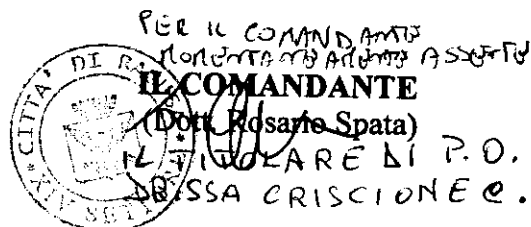 PER IL COMANDANTE
MOMENTANEAMENTE ASSENTE
IL COMANDANTE
(Dott. Rosario Spata)
IL TITOLARE DI P.O.
DR.SSA CRISCIONE C.
CITTA' DI
SETT
XIX